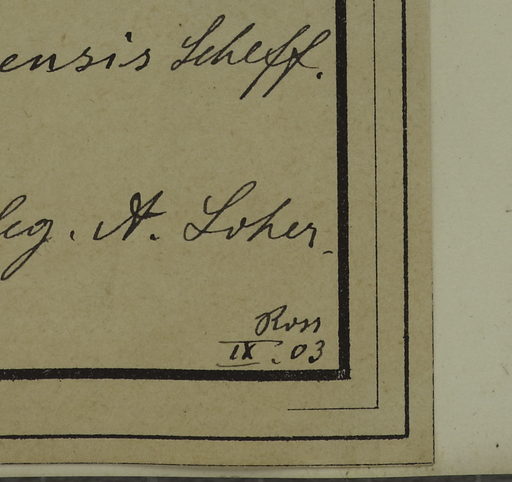 ensis Scheff.
leg. A. Loher.
Ross
IX. 03